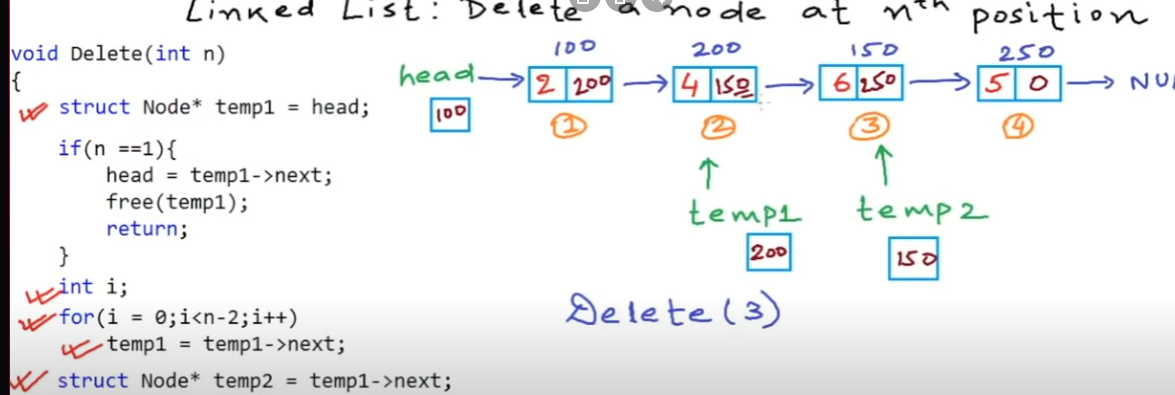 Linked List: Delete a node at nth position
void Delete(int n)
{
struct Node* temp1 = head;
if(n ==1){
head = temp1->next;
free(temp1);
return;
}
int i;
for(i = 0;i<n-2;i++)
temp1 = temp1->next;
struct Node* temp2 = temp1->next;
100 200 150 250
head 2 200 4 150 6 250 5 0 NU
100
1 2 3 4
temp1 temp2
200 150
Delete(3)